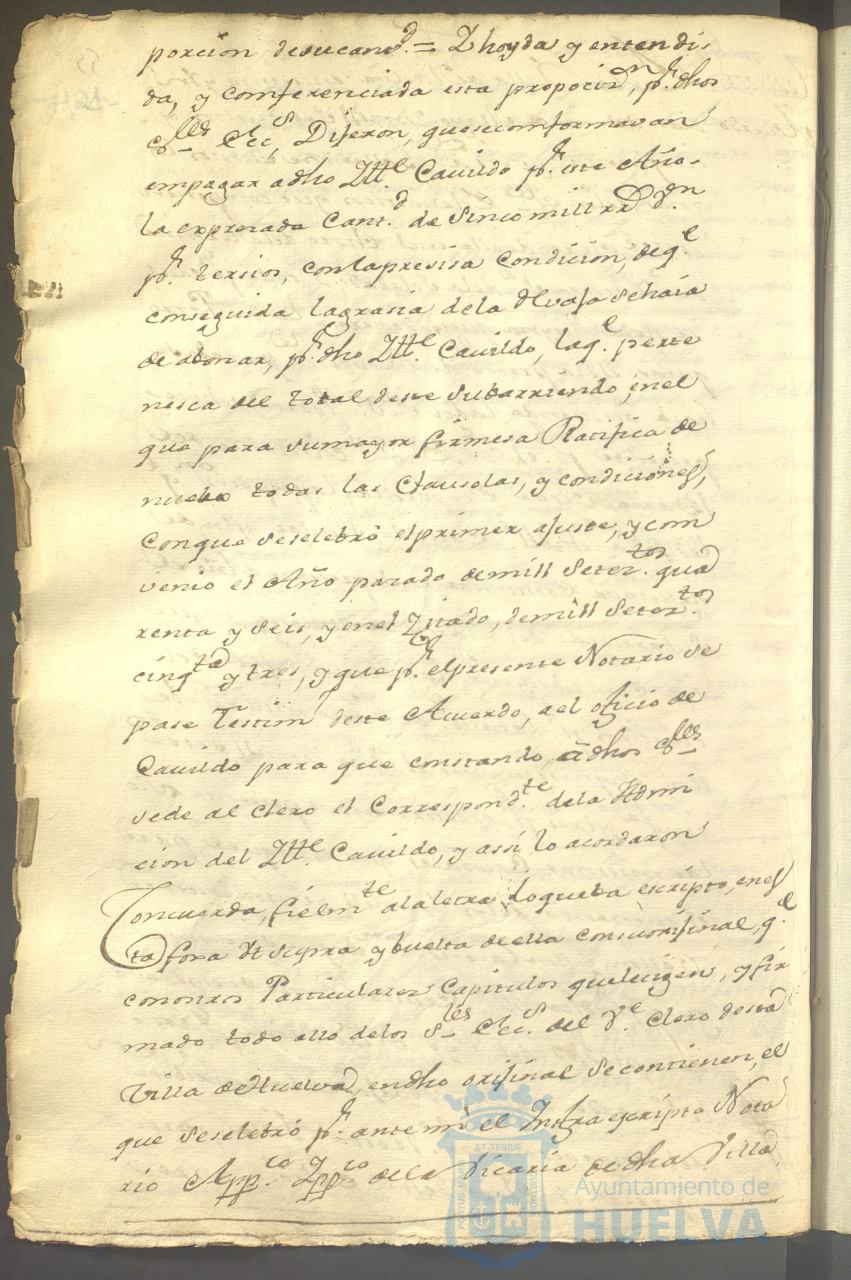 porcion desu cantd. = Y hoyda y entendi-
da, y comferenciada esta proposizn, pr. dhos
sres Ecc.s, Dijeron, que se comformavan
em pagar a dho Ille. Cavildo pr. este Año-
la expresada Cantd. de Sinco mill rrs. Vn
pr. tersios, con la presisa Condicion, de q.e
conseguida la grasia de la Rebaja se haia
de abonar, pr. dho Ille. Cavildo, la q.e perte
nesca del total deste subarriendo, en el
que para su mayor firmesa Ratifica de
nuebo todas las Clausolas, y condiciones,
Con que se selebró el primer ajuste, y com
venio el Año pasado de mill Setez.tos qua
renta y seis, y en el Zitado, de mill Setez.tos
cinq.ta y tres, y que pr. el presente Notario se
pase Testim.o deste Acuerdo, a el oficio de
Cavildo para que constando, â dhos sres
se de al Clero el Correspond.te de la Admi
cion del Ille. Cavildo, y assi lo acordaron
Concuerda, fielm.te a la letra lo que ba escripto, en es
ta foxa Ut supra y buelta de ella con su orijinal, q.e
con otros Particulares Capitulos que leijen, y fir
mado todo ello de los S.res Ecc.s. del V.e Clero desta
Villa de Huelva, en dho orijinal se contienen, el
que se selebró pr. ante mi el Infraescripto Nota
rio App.co Ypp.co de la Vicaria de dha Villa
Ayuntamiento de
HUELVA